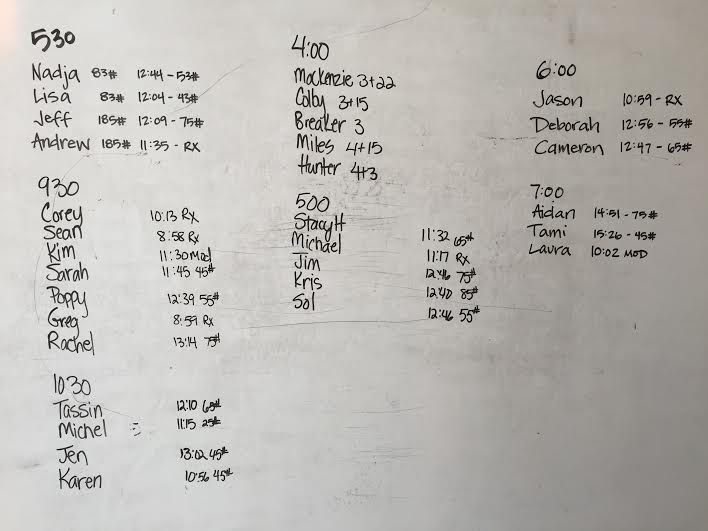 530
Nadja 83# 12:44 - 53#
Lisa 83# 12:04 - 43#
Jeff 185# 12:09 - 75#
Andrew 185# 11:35 - RX
930
Corey 10:13 RX
Sean 8:58 RX
Kim 11:30 Mod
Sarah 11:45 45#
Poppy 12:39 55#
Greg 8:59 RX
Rachel 13:14 75#
1030
Tassin 12:10 65#
Michel 11:15 25#
Jen 13:02 45#
Karen 10:56 45#
4:00
Mackenzie 3+22
Colby 3+15
Breaker 3
Miles 4+15
Hunter 4+3
500
Stacy H 11:32 65#
Michael 11:17 RX
Jim 12:46 75#
Kris 12:40 85#
Sol 12:46 55#
6:00
Jason 10:59 - RX
Deborah 12:56 - 55#
Cameron 12:47 - 65#
7:00
Aidan 14:51 - 75#
Tami 15:26 - 45#
Laura 10:02 MOD